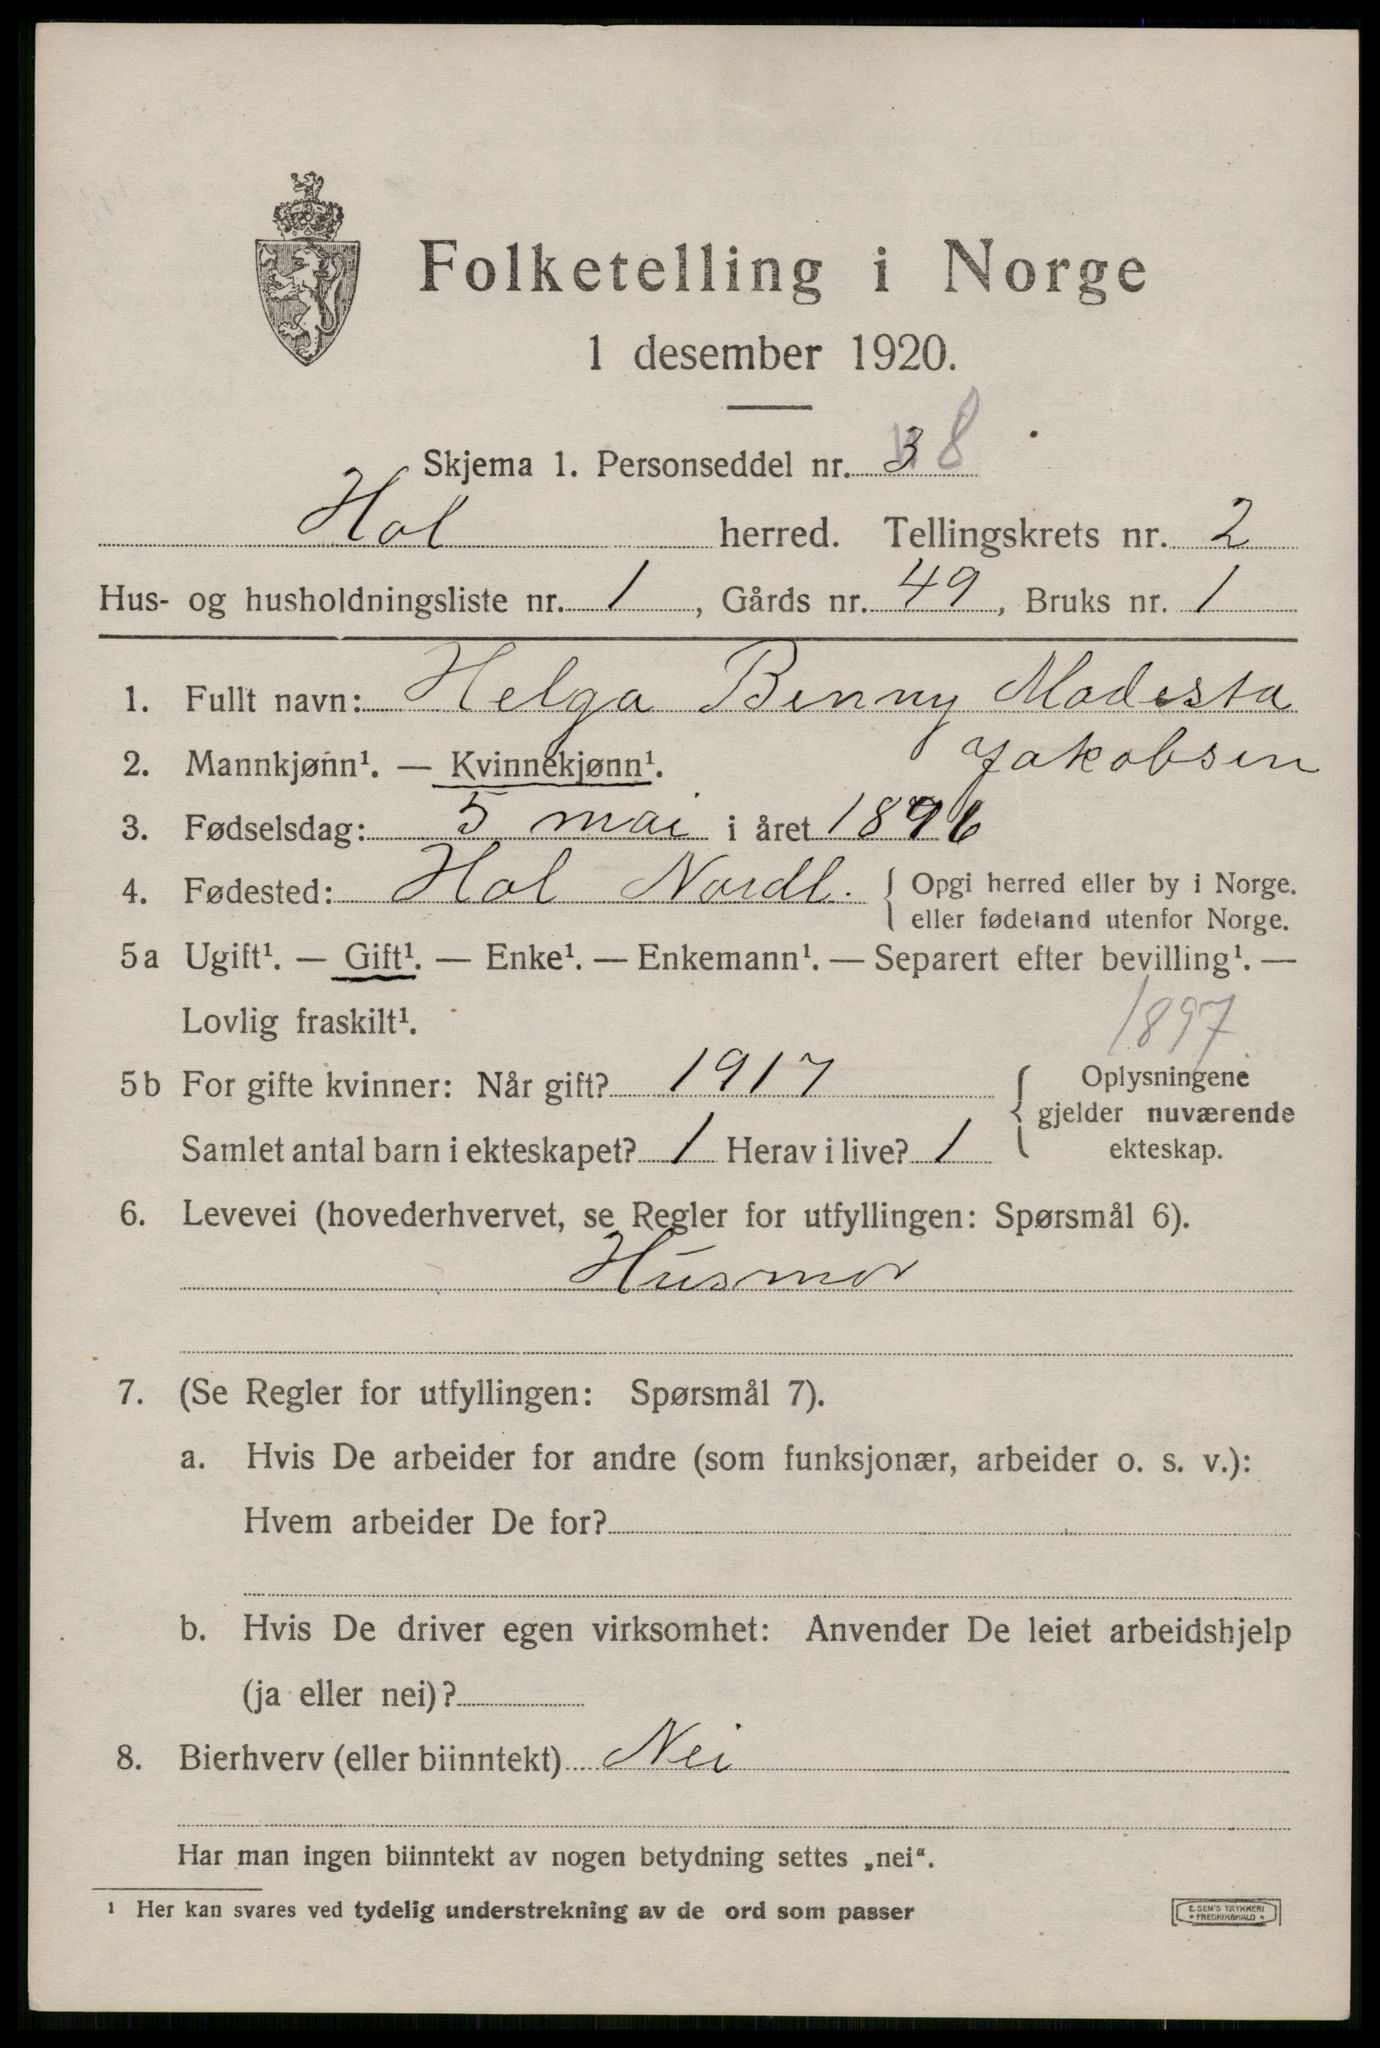 Folketelling i Norge
1 desember 1920.
Skjema 1. Personseddel nr. 3 8
Hol herred. Tellingskrets nr. 2
Hus- og husholdningsliste nr. 1, Gårds nr. 49, Bruks nr. 1
1. Fullt navn: Helga Benny Modesta
Jakobsen
2. Mannkjønn¹. — Kvinnekjønn¹.
3. Fødselsdag: 5 mai i året 1896
4. Fødested: Hol Nordl. { Opgi herred eller by i Norge.
eller fødeland utenfor Norge.
5a Ugift¹. — Gift¹. — Enke¹. — Enkemann¹. — Separert efter bevilling¹. —
Lovlig fraskilt¹.
1897
5b For gifte kvinner: Når gift? 1917
Samlet antal barn i ekteskapet? 1 Herav i live? 1
{ Oplysningene
gjelder nuværende
ekteskap.
6. Levevei (hovederhvervet, se Regler for utfyllingen: Spørsmål 6).
Husmor
7. (Se Regler for utfyllingen: Spørsmål 7).
a. Hvis De arbeider for andre (som funksjonær, arbeider o. s. v.):
Hvem arbeider De for?
b. Hvis De driver egen virksomhet: Anvender De leiet arbeidshjelp
(ja eller nei)?
8. Bierhverv (eller biinntekt) Nei
Har man ingen biinntekt av nogen betydning settes „nei“.
¹ Her kan svares ved tydelig understrekning av de ord som passer
E. SEM'S TRYKKERI
* FREDRIKSHALD *